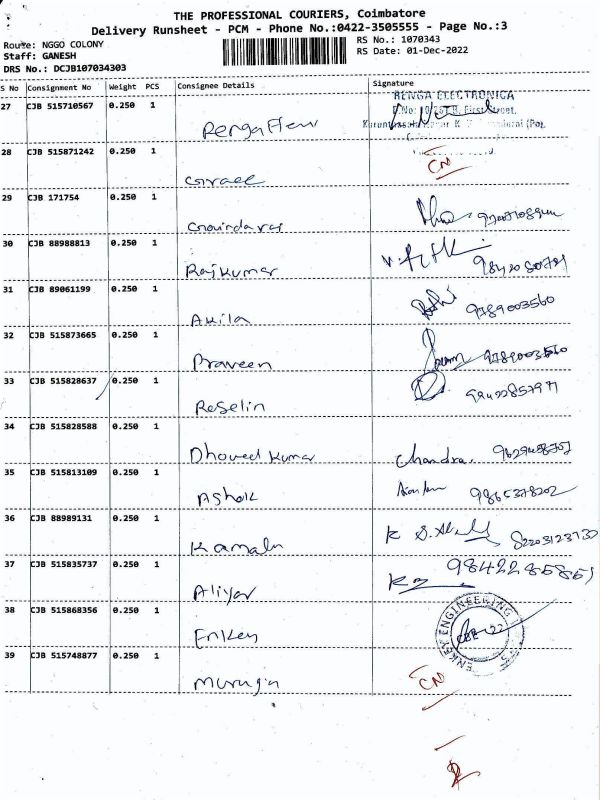 THE PROFESSIONAL COURIERS, Coimbatore
Delivery Runsheet - PCM - Phone No.:0422-3505555 - Page No.:3
Route: NGGO COLONY
RS No.: 1070343
Staff: GANESH
RS Date: 01-Dec-2022
DRS No.: DCJB107034303
S No Consignment No Weight PCS Consignee Details Signature
27 CJB 515710567 0.250 1
RENGA ELECTRONICA
28 CJB 515871242 0.250 1
Grace CN
29 CJB 171754 0.250 1
Govindaraj
30 CJB 88988813 0.250 1
Rajkumar
31 CJB 89061199 0.250 1
Akila 9789003560
32 CJB 515873665 0.250 1
Praveen 9789003560
33 CJB 515828637 0.250 1
Roselin
34 CJB 515828588 0.250 1
Kumar Chandra.
35 CJB 515813109 0.250 1
Ashok 9865378202
36 CJB 88989131 0.250 1
Kamala
37 CJB 515835737 0.250 1
Aliyar
38 CJB 515868356 0.250 1
Enkey ENKEY ENGINEERING
39 CJB 515748877 0.250 1
Murugan CN